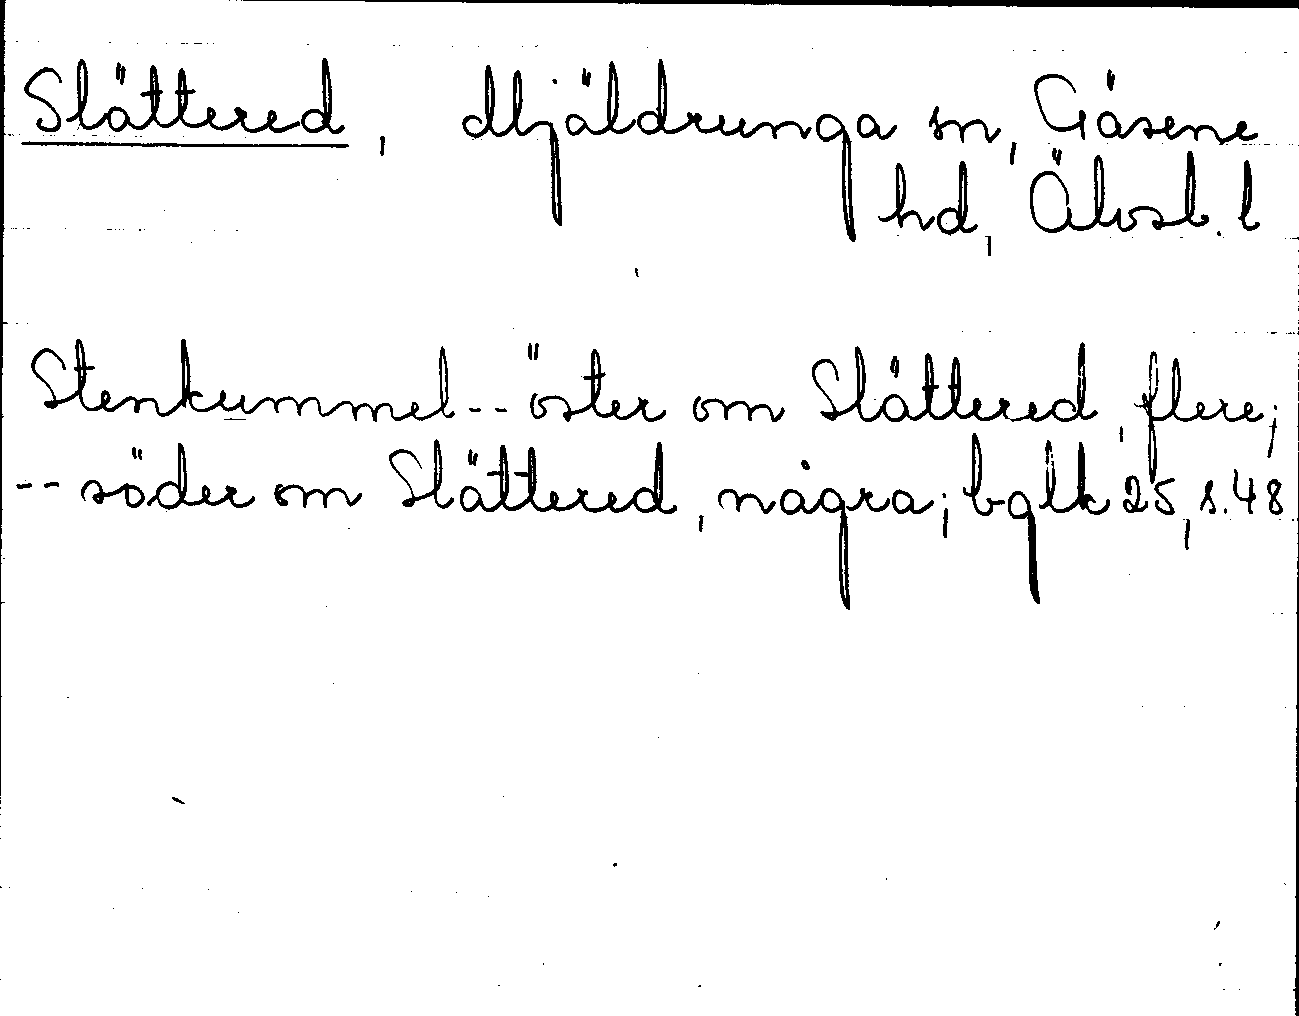 Slättered, Mjäldrunga sn, Gäsene
hd, Älvsb. l
Stenkummel -- öster om Slättered, flere;
-- söder om Slättered, några; bglk 25, s. 48